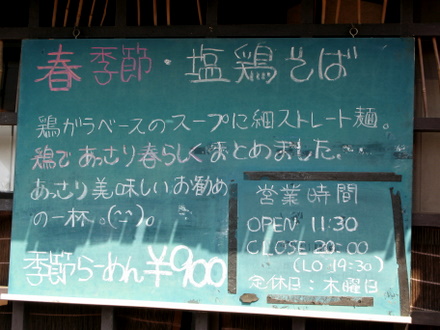 春季節・塩鶏そば
鶏ガラベースのスープに細ストレート麺。
鶏であっさり春らしくまとめました。
あっさり美味しいお勧め
の一杯。(^-^)。
季節らーめん¥900
営業時間
OPEN 11:30
CLOSE 20:00
(LO 19:30)
定休日:木曜日